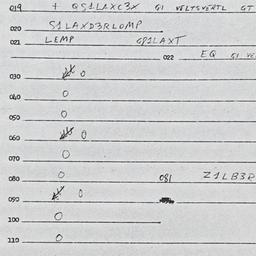 019 + QS1LAXC3X GI VELTSVERTL GT
020 S1LAXD3RLOMP
021 LEMP GP1LAXT
022 EQ GI VE
030 0
040 0
050 0
060 0
070 0
080 0 081 Z1LB3R
090 0
100 0
110 0